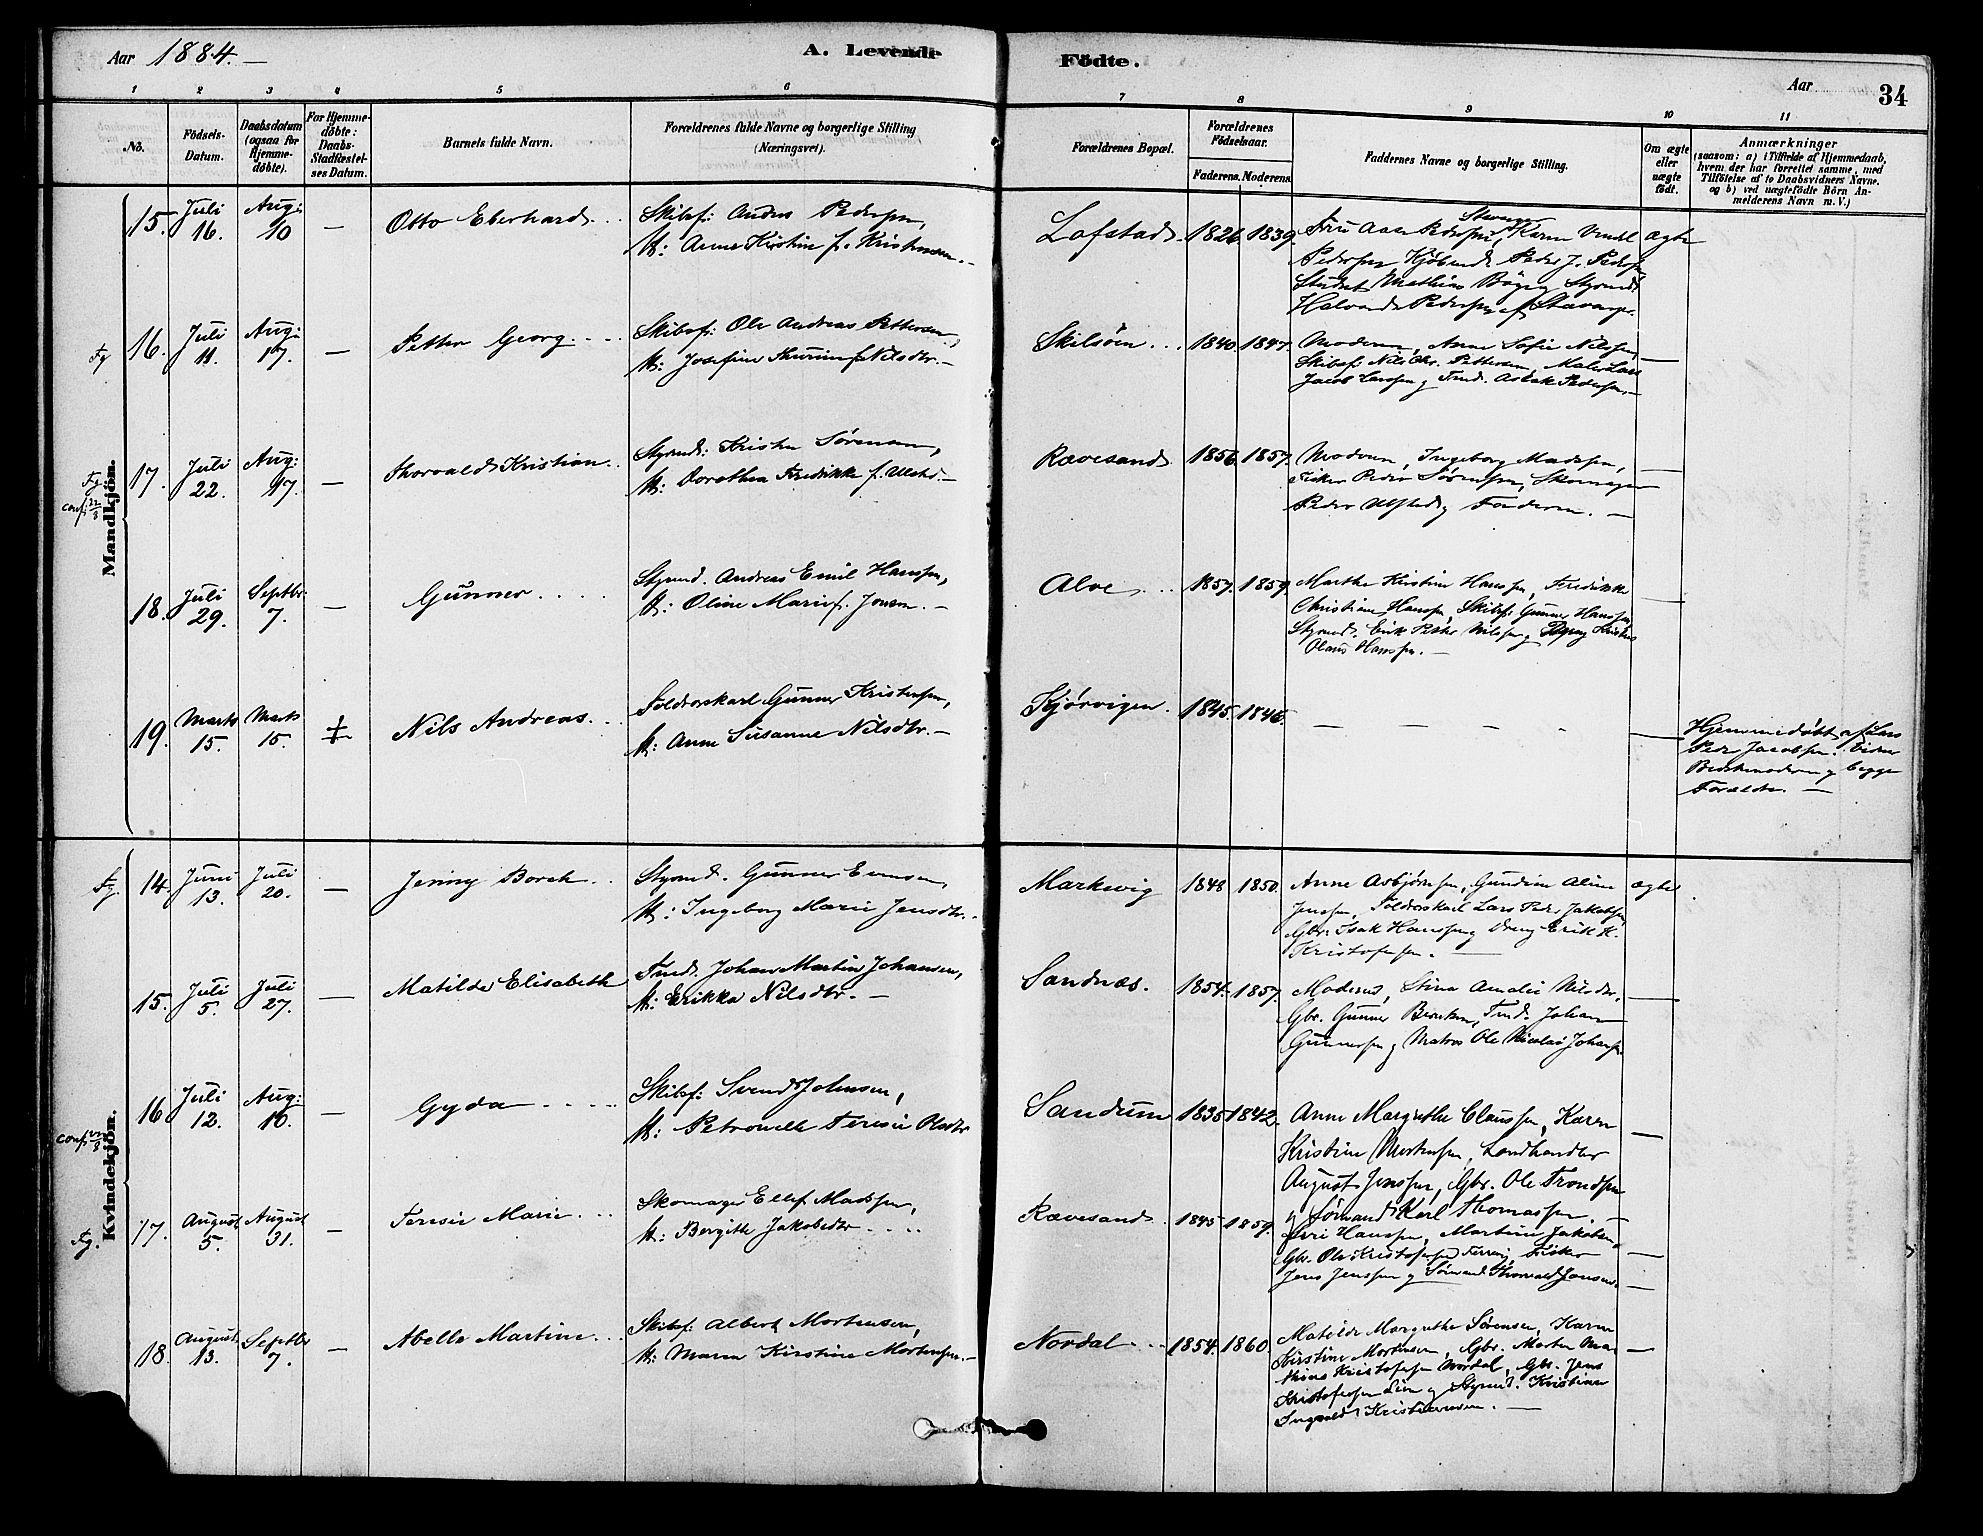 Aar 1884.
A. Levende Födte.
Aar
34
1 2 3 4 5 6 7 8 9 10 11
No.
Födsels-Datum.
Daabsdatum (ogsaa for Hjemme-døbte).
For Hjemme-døbte: Daabs-Stadfæstel-ses Datum.
Barnets fulde Navn.
Forældrenes fulde Navne og borgerlige Stilling (Næringsvei).
Forældrenes Bopæl.
Forældrenes Födselsaar.
Faderens. Moderens.
Faddernes Navne og borgerlige Stilling.
Om ægte eller uægte født.
Anmærkninger
(saasom: a) i Tilfælde af Hjemmedaab,
hvem der har forrettet samme, med
Tilföielse af to Daabsvidners Navne,
og b) ved uægtefödte Börn An-
melderens Navn m. V.)
Mandkjön.
15. Juli 16. Aug: 10 — Otto Eberhard
Skibsf: Anders Pedersen,
H: Anne Kirstine f. Kristensen. —
Lofstad 1826 1839. Fru Aase Pedersen, Karen
Pedersen Peder J. Pedersen
Student Mathias Styrmd
Halvard Pedersen af Stavanger.
ægte
16. Juli 11. Aug: 17. — Petter Georg.
Skibsf: Ole Andreas Pettersen,
H: Josefine Nilsdtr. —
Skilsöen 1840. 1847. Moderen, Anne Sofie Nilssen,
Skibsf: Nils Chr. Pettersen, Maler Lars
Jacob Larssen og Tmd. Aslak Pedersen. —
17. Juli 22. Aug: 17. — Thorvald Kristian
Styrmd: Kristen Sørensen,
H: Dorothea Fredrikke f. Ulstd. —
Rævesand 1856. 1857. Moderen, Ingeborg Madssen,
Fisker Peder Sørensen, Skomager
Peder Ulsted og Faderen. —
conf: 22/8
18. Juli 29. Septbr. 7. — Gunner
Styrmd. Andreas Emil Hanssen,
H: Oline Marie f. Jensen. —
Alve 1857. 1859. Marthe Kirstine Hanssen, Fredrikke
Christiane Hanssen, Skibsf: Gunner Hanssen,
Styrmd. Erik Petter Nilssen og
Olaus Hanssen. —
19. Marts 15. Marts 15. Nils Andreas.
Toldrorskarl Gunner Kristensen,
H: Anne Susanne Nilsdtr. —
Kjørvigen 1845. 1846. — — — —
Hjemmedøbt af Lars
Peder Jacobsen. Vidner
Bedstemoderen og begge
Forældre. —
Kvindekjön.
14. Juni 13. Juli 20. — Jenny Borch
Styrmd. Gunner Evensen,
H: Ingeborg Marie Jensdtr.
Markevig 1848 1850. Anne Asbjørnsen, Gundine Aline
Jenssen, Toldrorskarl Lars Peder Jakobsen,
Gbr: Isak Hanssen og Dreng Erik K.
Kristofersen. —
ægte
15. Juli 5. Juli 27. — Matilde Elisabeth
Tmd. Johan Martin Johansen,
H: Erikka Nilsdtr. —
Sandnæs. 1854. 1857. Moderen, Stina Amalie Nilsdtr.
Gbr. Gunner Tmd. Johan
Gunnersen og Matros Ole Nicolai Johansen
conf: 22/8
16 Juli 12. Aug: 10. — Gyda
Skibsf: Svend Johnsen,
H: Petronelle Teresie
Sandum 1835 1842. Anne Margrethe Claussen, Karen
Kristine Mortensen, Landhandler
August Jenssen, Gbr. Ole Trondsen
og Sømand Karl Thomassen —
17. August 5. August 31. — Teresie Marie
Skomager Ellef Madssen,
H: Bergitte Jakobsdtr
Rævesand. 1845 1859. Hanssen, Martine Jakobsen
Gbr. Ole Kristofersen Fisker
Jens Jenssen og Sømand Thorvald Jensen. —
18. August 13. Septbr 7. — Abelle Martine
Skibsf: Albert Mortensen,
H: Maren Kirstine Mortensen. —
Nordal 1854. 1860. Matilde Margrethe Sørensen, Karen
Kirstine Mortensen, Gbr. Morten Ma-
thias Kristofersen Nordal, Gbr. Jens
Kristofersen Lien og Styrmd. Kristian
Kristiansen. —